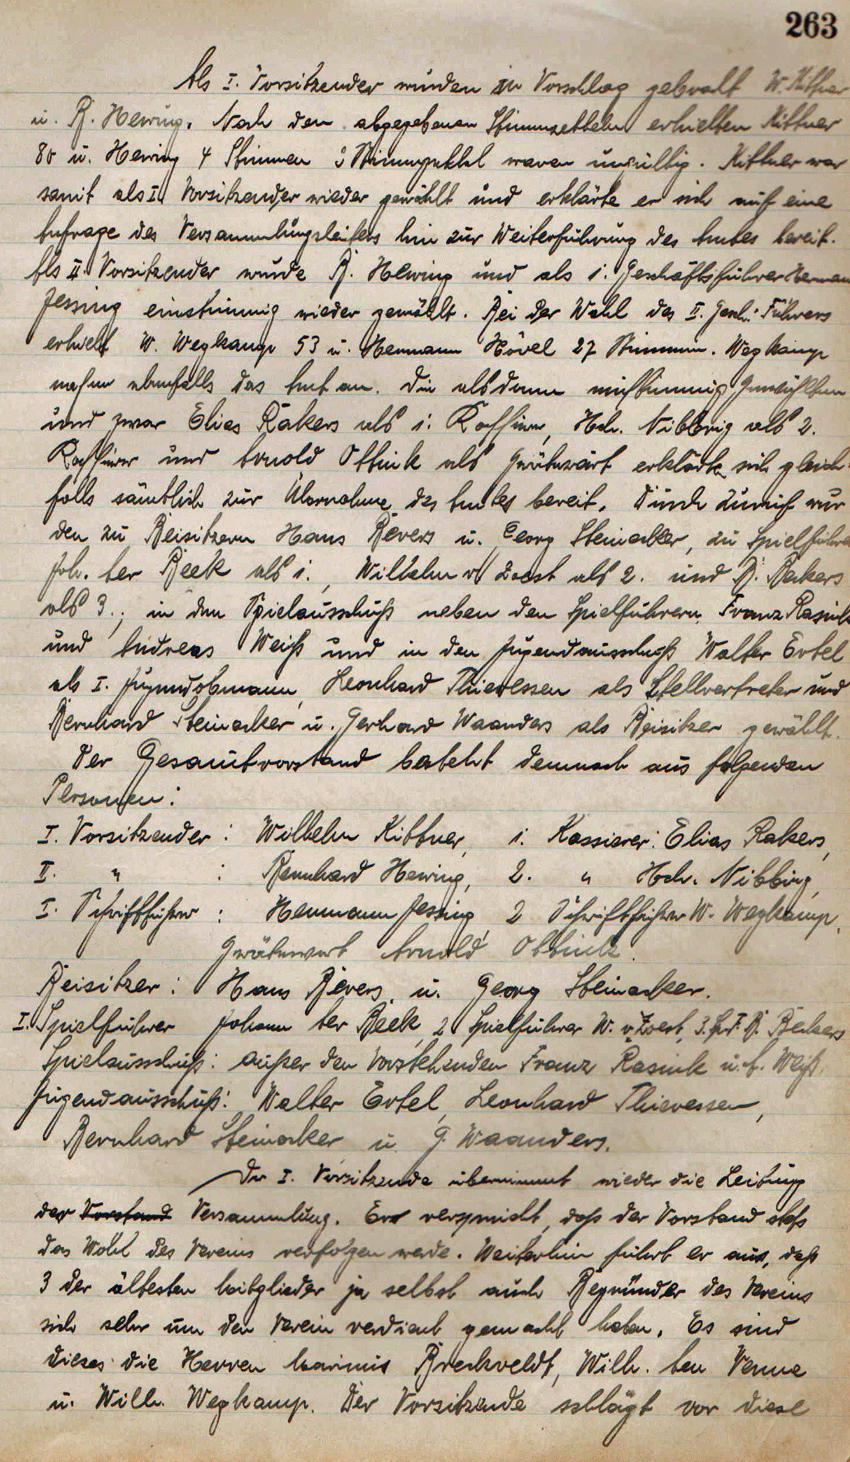 263
Als I. Vorsitzender wurden in Vorschlag gebracht W. Kittner
u. B. Hewing. Nach den abgegebenen Stimmzetteln erhielten Kittner
80 u. Hewing 4 Stimmen 3 Stimmzettel waren ungültig. Kittner war
somit als I. Vorsitzender wieder gewählt und erklärte er sich auf eine
Anfrage des Versammlungsleiters hin zur Weiterführung des Amtes bereit.
Als II. Vorsitzender wurde B. Hewing und als 1. Geschäftsführer Hermann
Jessing einstimmig wieder gewählt. Bei der Wahl des II. Gesch. Führers
erhielt W. Wegkamp 53 u. Hermann Hövel 27 Stimmen. Wegkamp
nahm ebenfalls das Amt an. Die alsdann einstimmig Gewählten
und zwar Elias Rakers als 1. Kassierer, Hch. Nibbrig als 2.
Kassierer und Arnold Ottink als Gerätewart erklärten sich gleich-
falls sämtlich zur Übernahme des Amtes bereit. Durch Zuruf wur
den zu Beisitzern Hans Bevers u. Georg Steinacker, zu Spielführern
Joh. ter Beek als 1., Wilhelm v. Zoest als 2. und B. Bekers
als 3.; in den Spielausschuß neben den Spielführern Franz Rasink
und Andreas Weiß und in den Jugendausschuß Walter Ertel
als I. Jugendobmann, Leonhard Thievessen als Stellvertreter und
Bernhard Steinacker u. Gerhard Waanders als Beisitzer gewählt.
Der Gesamtvorstand besteht demnach aus folgenden
Personen:
I. Vorsitzender : Wilhelm Kittner, 1. Kassierer: Elias Rakers,
II. " : Bernhard Hewing, 2. " Hch. Nibbrig,
I. Schriftführer : Hermann Jessing, 2 Schriftführer W. Wegkamp,
Gerätewart Arnold Ottink.
Beisitzer : Hans Bevers u. Georg Steinacker.
I. Spielführer Johann ter Beek, 2. Spielführer W. v. Zoest, 3. Spf. B. Bekers
Spielausschuß: außer den Vorstehenden Franz Rasink u. A. Weiß.
Jugendausschuß: Walter Ertel, Leonhard Thievessen,
Bernhard Steinacker u. G. Waanders.
Der I. Vorsitzende übernimmt wieder die Leitung
der Vorstand Versammlung. Er verspricht, daß der Vorstand stets
das Wohl des Vereins verfolgen werde. Weiterhin führt er aus, daß
3 der ältesten Mitglieder ja selbst auch Begründer des Vereins
sich sehr um den Verein verdient gemacht haben. Es sind
dieses die Herren Marinus Breckveldt, Wilh. ten Venne
u. Wilh. Wegkamp. Der Vorsitzende schlägt vor diese